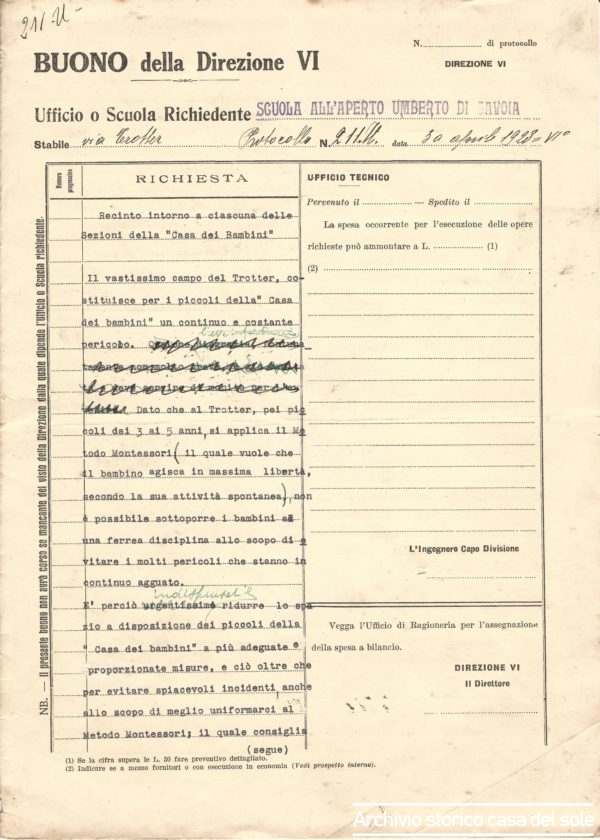 211-M-
N. ........ di protocollo
BUONO della Direzione VI
DIREZIONE VI
Ufficio o Scuola Richiedente SCUOLA ALL'APERTO UMBERTO DI SAVOIA
Stabile via Trotter Protocollo N. 211.M. data 30 aprile 1928=VI°
NB. — Il presente buono non avrà corso se mancante del visto della Direzione dalla quale dipende l'Ufficio o Scuola richiedente.
Numero progressivo
RICHIESTA
Recinto intorno a ciascuna delle
Sezioni della "Casa dei Bambini"
Il vastissimo campo del Trotter, co-
stituisce per i piccoli della" Casa
dei bambini" un continuo e costante
pericolo.
Dato che al Trotter, pei pic
coli dai 3 ai 5 anni, si applica il Me
todo Montessori ( il quale vuole che
il bambino agisca in massima libertà,
secondo la sua attività spontanea), non
è possibile sottoporre i bambini ad
una ferrea disciplina allo scopo di e
vitare i molti pericoli che stanno in
continuo agguato.
E' perciò urgentissimo ridurre lo spa
zio a disposizione dei piccoli della
" Casa dei bambini" a più adeguate e
proporzionate misure, e ciò oltre che
per evitare spiacevoli incidenti, anche
allo scopo di meglio uniformarci al
Metodo Montessori; il quale consiglia
(segue)
UFFICIO TECNICO
Pervenuto il ........ — Spedito il ........
La spesa occorrente per l'esecuzione delle opere
richieste può ammontare a L. ........ (1)
(2)
L'Ingegnere Capo Divisione
Vegga l'Ufficio di Ragioneria per l'assegnazione
della spesa a bilancio.
DIREZIONE VI
Il Direttore
(1) Se la cifra supera le L. 50 fare preventivo dettagliato.
(2) Indicare se a mezzo fornitori o con esecuzione in economia (Vedi prospetto interno).
Archivio storico casa del sole